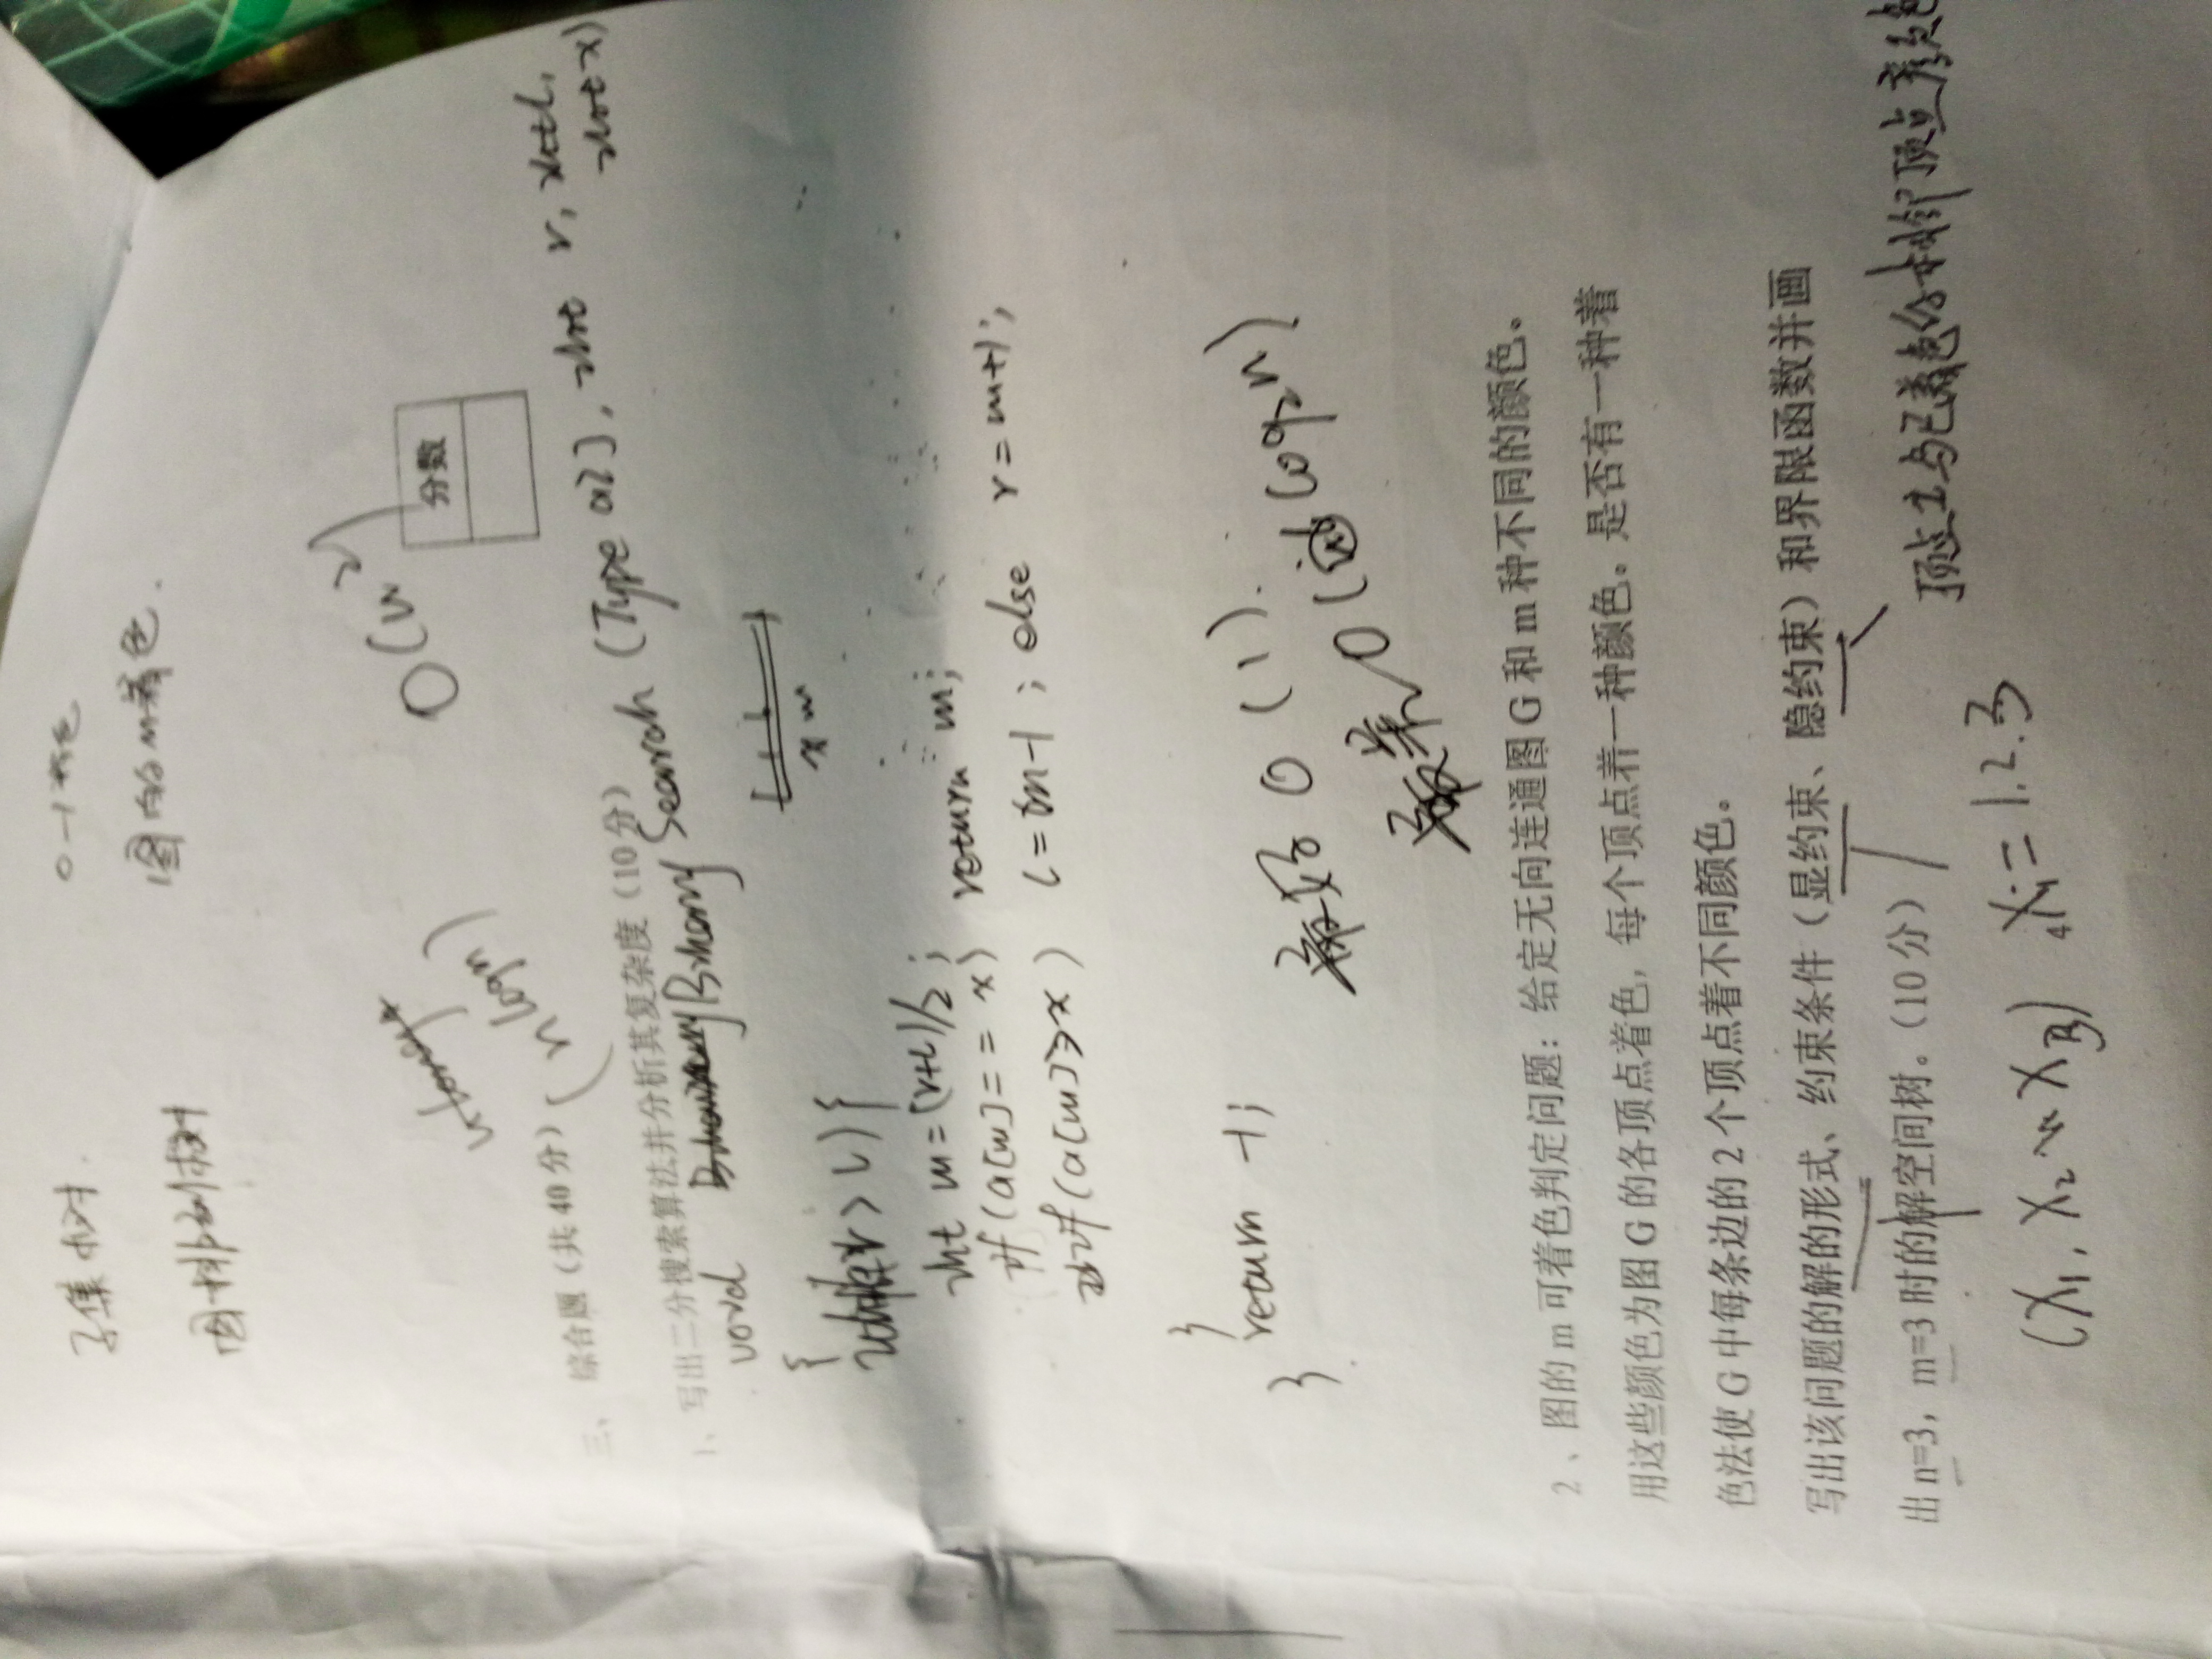 子集树
0-1背包
图排列树
图的m着色.
O(n²)
分数
(nlogn)
三、 综合题（共 40 分）
1、写出二分搜索算法并分析其复杂度（10 分）
void Binary Search (Type a[], int r, int l,
int x)
{
x m
while(r > l) {
int m=(r+l)/2;
if(a[m]== x) return m;
if(a[m]>x) l=m-1; else r=m+1;
}
return -1;
}
最好 O(1).
最差 O(log₂n)
2 、图的 m 可着色判定问题：给定无向连通图 G 和 m 种不同的颜色。
用这些颜色为图 G 的各顶点着色，每个顶点着一种颜色。是否有一种着
色法使 G 中每条边的 2 个顶点着不同颜色。
写出该问题的解的形式、约束条件（显约束、隐约束）和界限函数并画
出 n=3，m=3 时的解空间树。（10 分）
顶点 与已着色的相邻顶点颜色
(X₁, X₂ X₃) Xᵢ=1.2.3
4